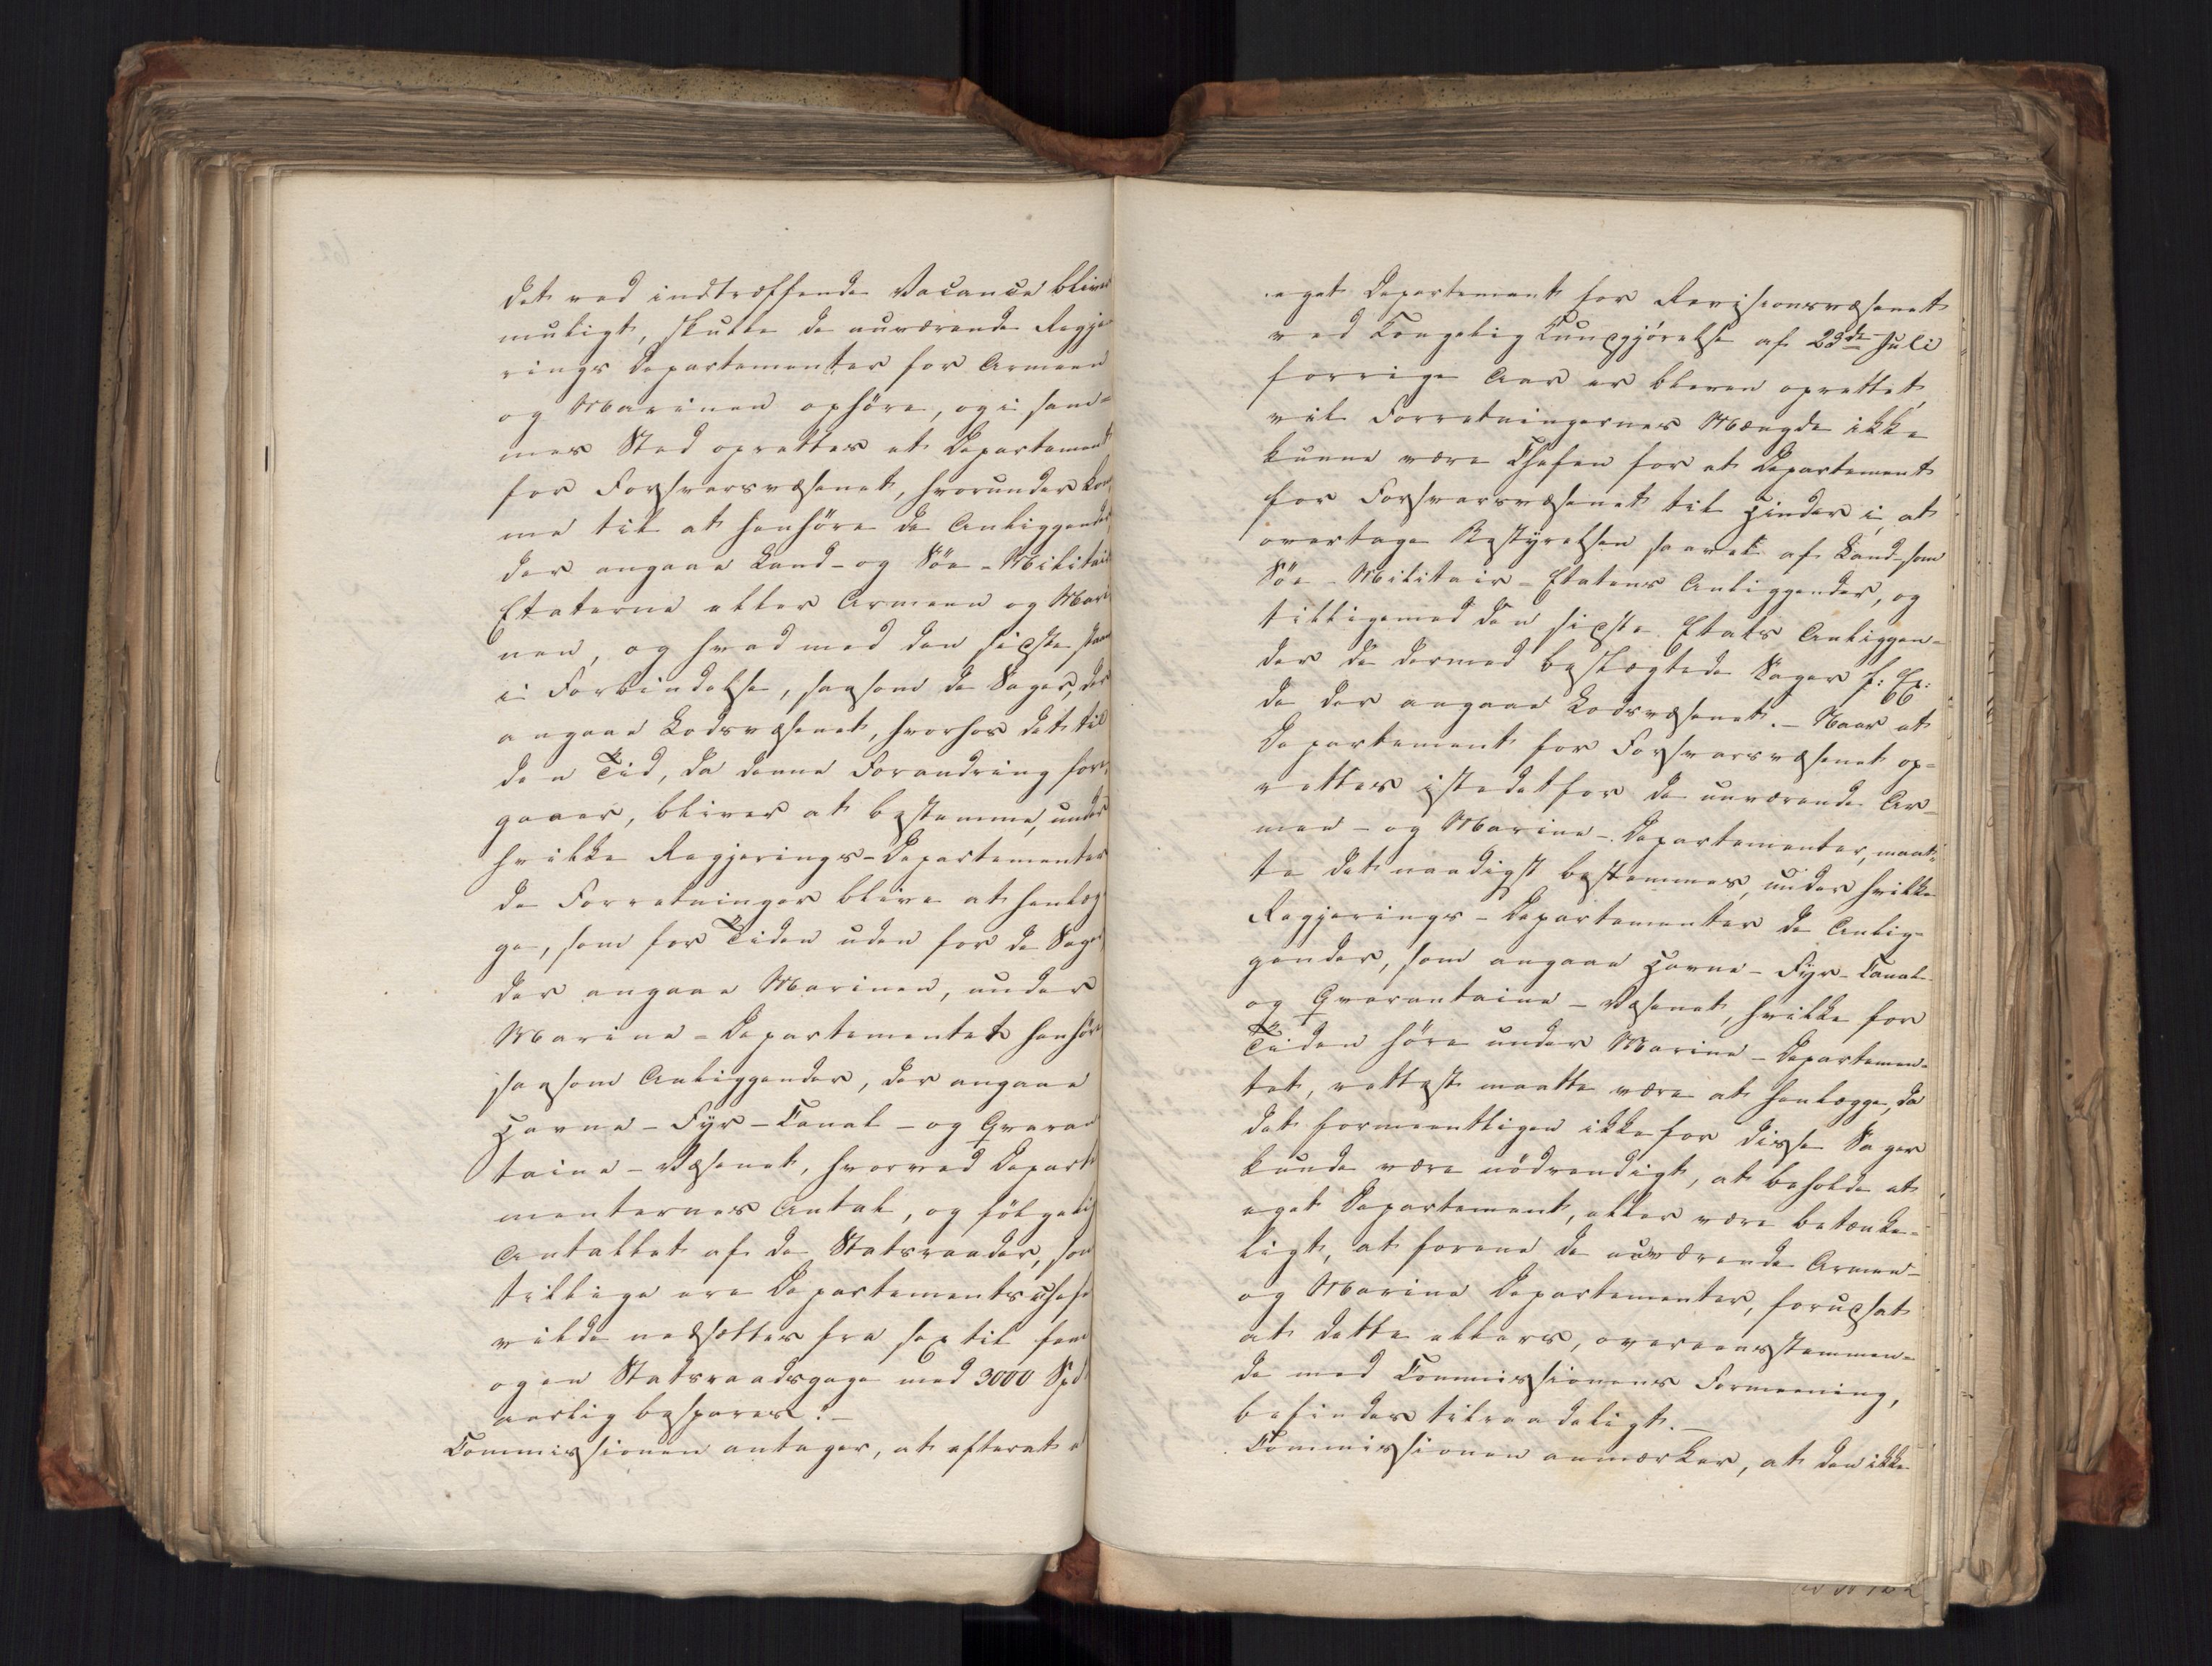 det ved indtræffende Vacance bliver
muligt, skulle de nuværende Regje-
rings Departementer for Armeen
og Marinen ophöre, og i sam-
mes Sted oprettes et Departement
for Forsvarsvæsenet, hvorunder kom
me til at henhöre de Anliggender,
der angaae Land- og Söe-Militair
Etaterne eller Armeen og Mari
nen, og hvad med den sidste staaer
i Forbindelse, saasom de Sager, der
angaae Lodsvæsenet, hvorhos det til
den Tid, da denne Forandring fore
gaaer, bliver at bestemme, under
hvilke Regjerings-Departementer
de Forretninger blive at henlæg
ge, som for Tiden uden for de Sager
der angaae Marinen, under
Marine-Departementet henhöre
saasom Anliggender, der angaae
Havne-Fyr-Canal-og Qvaran
taine-Væsenet, hvorved Departe
menternes Antal, og fölgelig
Antallet af de Statsraader, som
tillige ere Departementschefer
vilde nedsættes fra sex til fem
og en Statsraadsgage med 3000 Spd
aarlig bespares.-
Commissionen antager, at efterat e
eget Departement for Revisionsvæsenet
ved Kongelig Kundgjörelse af 23de Juli
forrige Aar er bleven oprettet,
vil Forretningernes Mængde ikke
kunne være Chefen for et Departement
for Forsvarsvæsenet til Hinder i, at
overtage Bestyrelsen saavel af Land- som
Söe-Militair-Etatens Anliggender, og
tilligemed den sidste Etats Anliggen-
der de dermed beslægtede Sager f: Ex:
de der angaae Lodsvæsenet.- Naar et
Departement for Forsvarsvæsenet op-
rettes istedetfor de nuværende Ar-
mee-og Marine-Departementer, maat-
te det naadigst bestemmes, under hvilke
Regjerings-Departementer de Anlig-
gender, som angaae Havne-Fyr-Canal-
og Qvarantaine-Væsenet, hvilke for
Tiden höre under Marine-Departemen-
tet, rettest maatte være at henlægge, da
det formeentligen ikke for disse Sager
kunde være nödvendigt, at beholde et
eget Departement, eller være betænke-
ligt, at forene de nuværende Armee-
og Marine Departementer, forudsat
at dette ellers, overeensstemmen-
de med Commissionens Formening,
befindes tilraadeligt.-
Commissionen anmærker, at den ikke